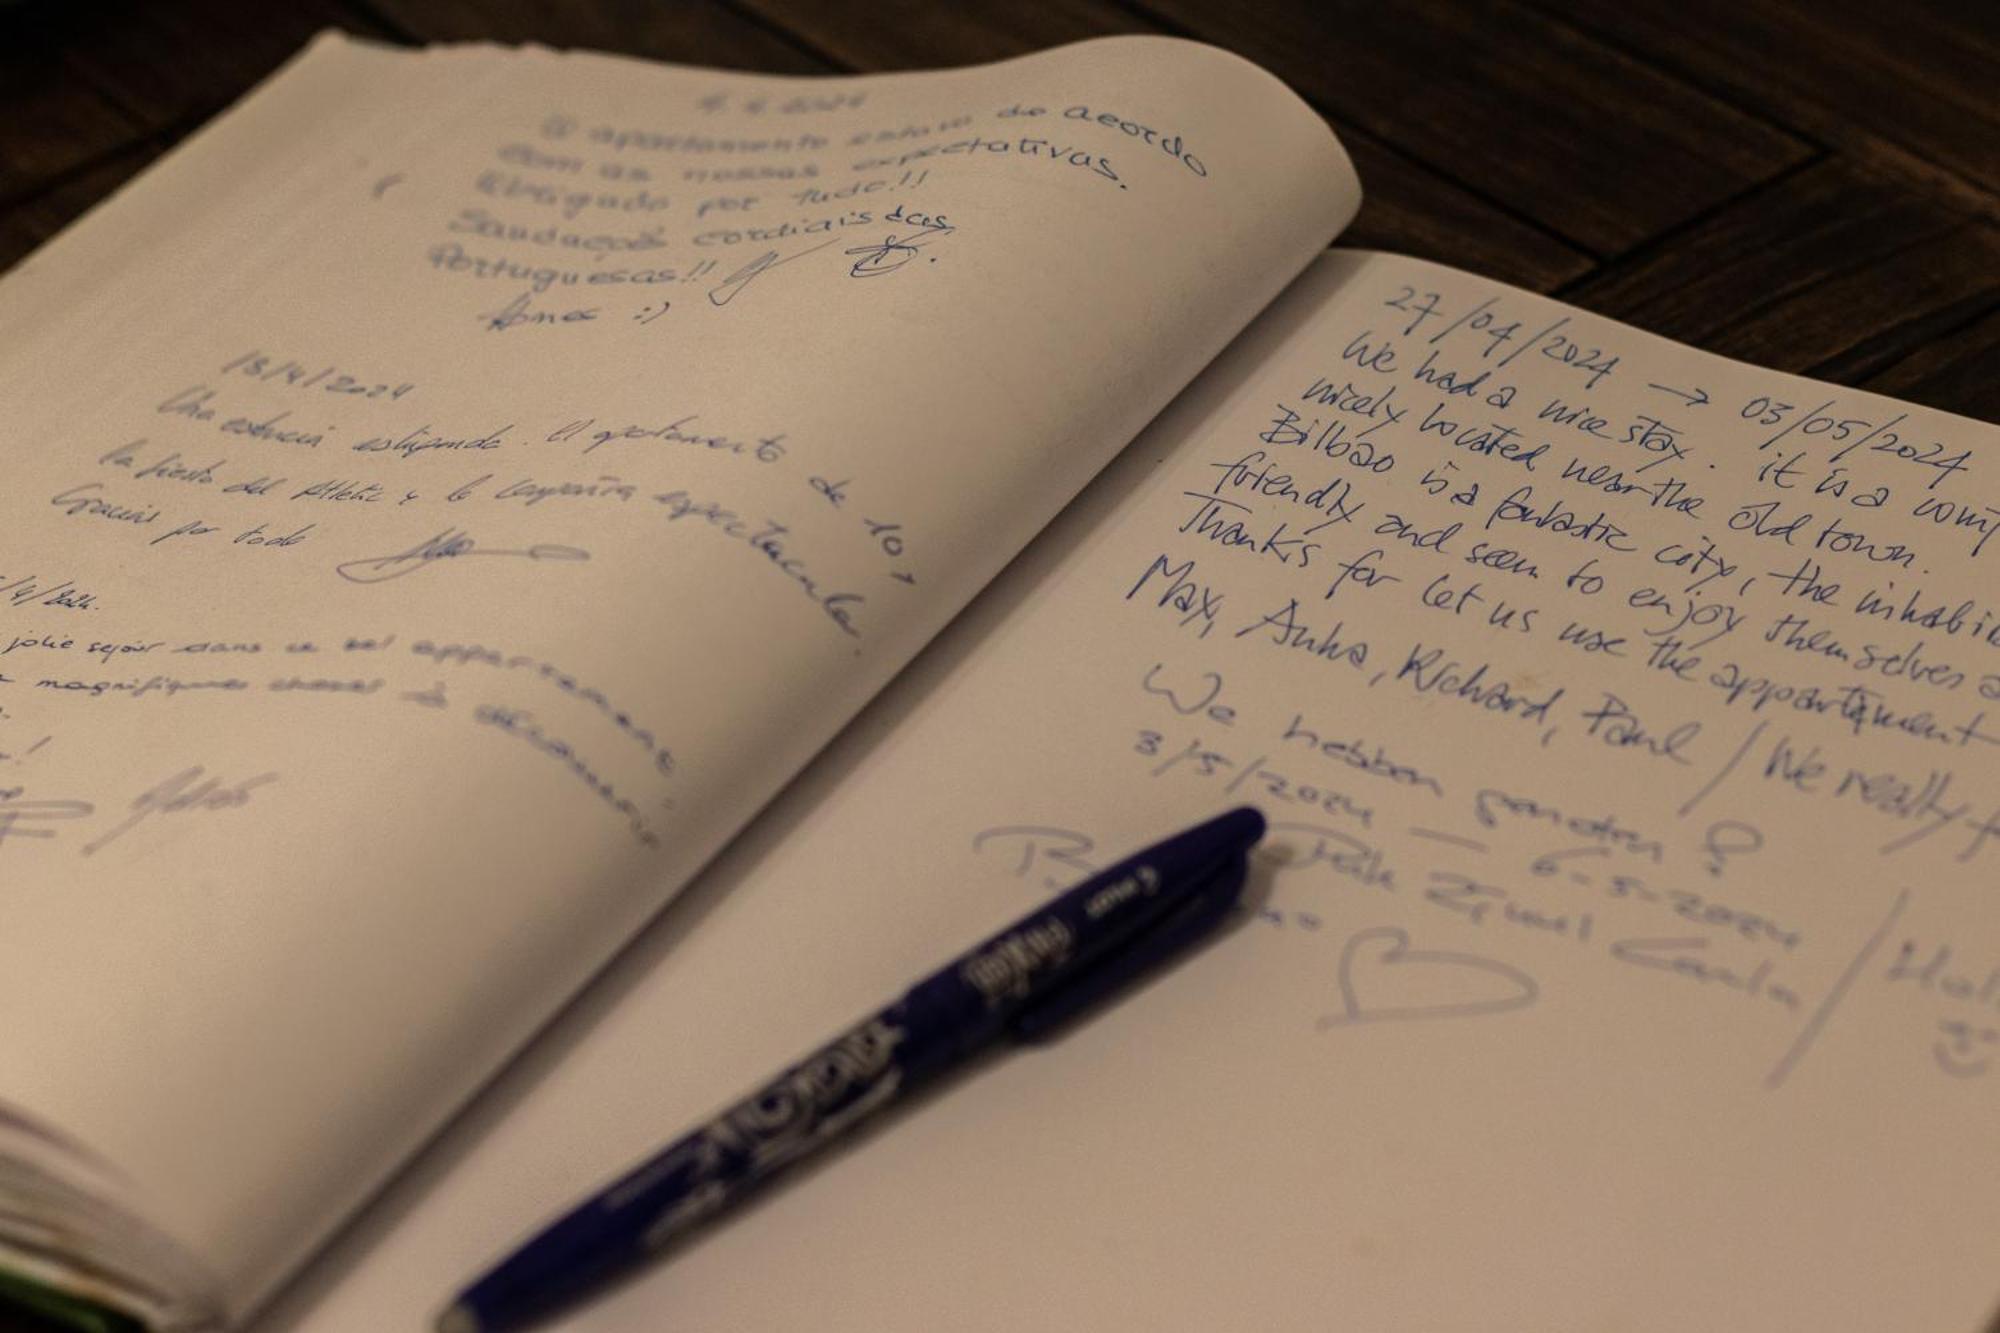 4.4.2024
O apartamento estava de acordo
com as nossas expectativas.
Obrigado por tudo!!
Saudações cordiais das
Portuguesas!!
:)
13/4/2024
Una estancia estupenda. El apartamento de 10,
la fiesta del Athletic y la compañía espectacular
Gracias por todo
/4/2024.
jolie sejour dans ce bel appartement
magnifiques
27/04/2024 → 03/05/2024
We had a nice stay. it is a comf
nicely located near the old town.
Bilbao is a fantastic city, the inhabi
friendly and seem to enjoy themselves a
Thanks for let us use the appartement
Max, Anha, Richard, Paul / We really
We hebben genoten
3/5/2024 — 6-5-2024
Carla
Pilot
FriXion